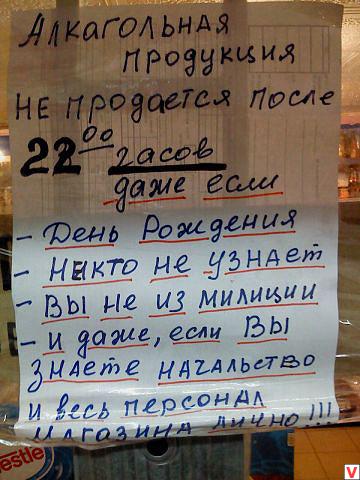 Алкагольная
продукция
не продается после
22⁰⁰ часов
даже если
- День Рождения
- Некто не узнает
- Вы не из милиции
- и даже, если Вы
знаете начальство
и весь персонал
магазина лично!!!
Nestle
V